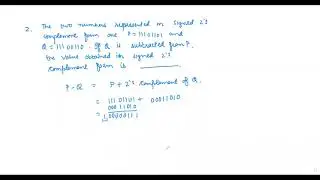 2. The two numbers represented in signed 2's
complement form are P = 11101101 and
Q = 11100110. If Q is subtracted from P,
the value obtained in signed 2's
complement form is
P-Q = P + 2's complement of Q.
= 11101101 + 00011010
00011010
= 100000111